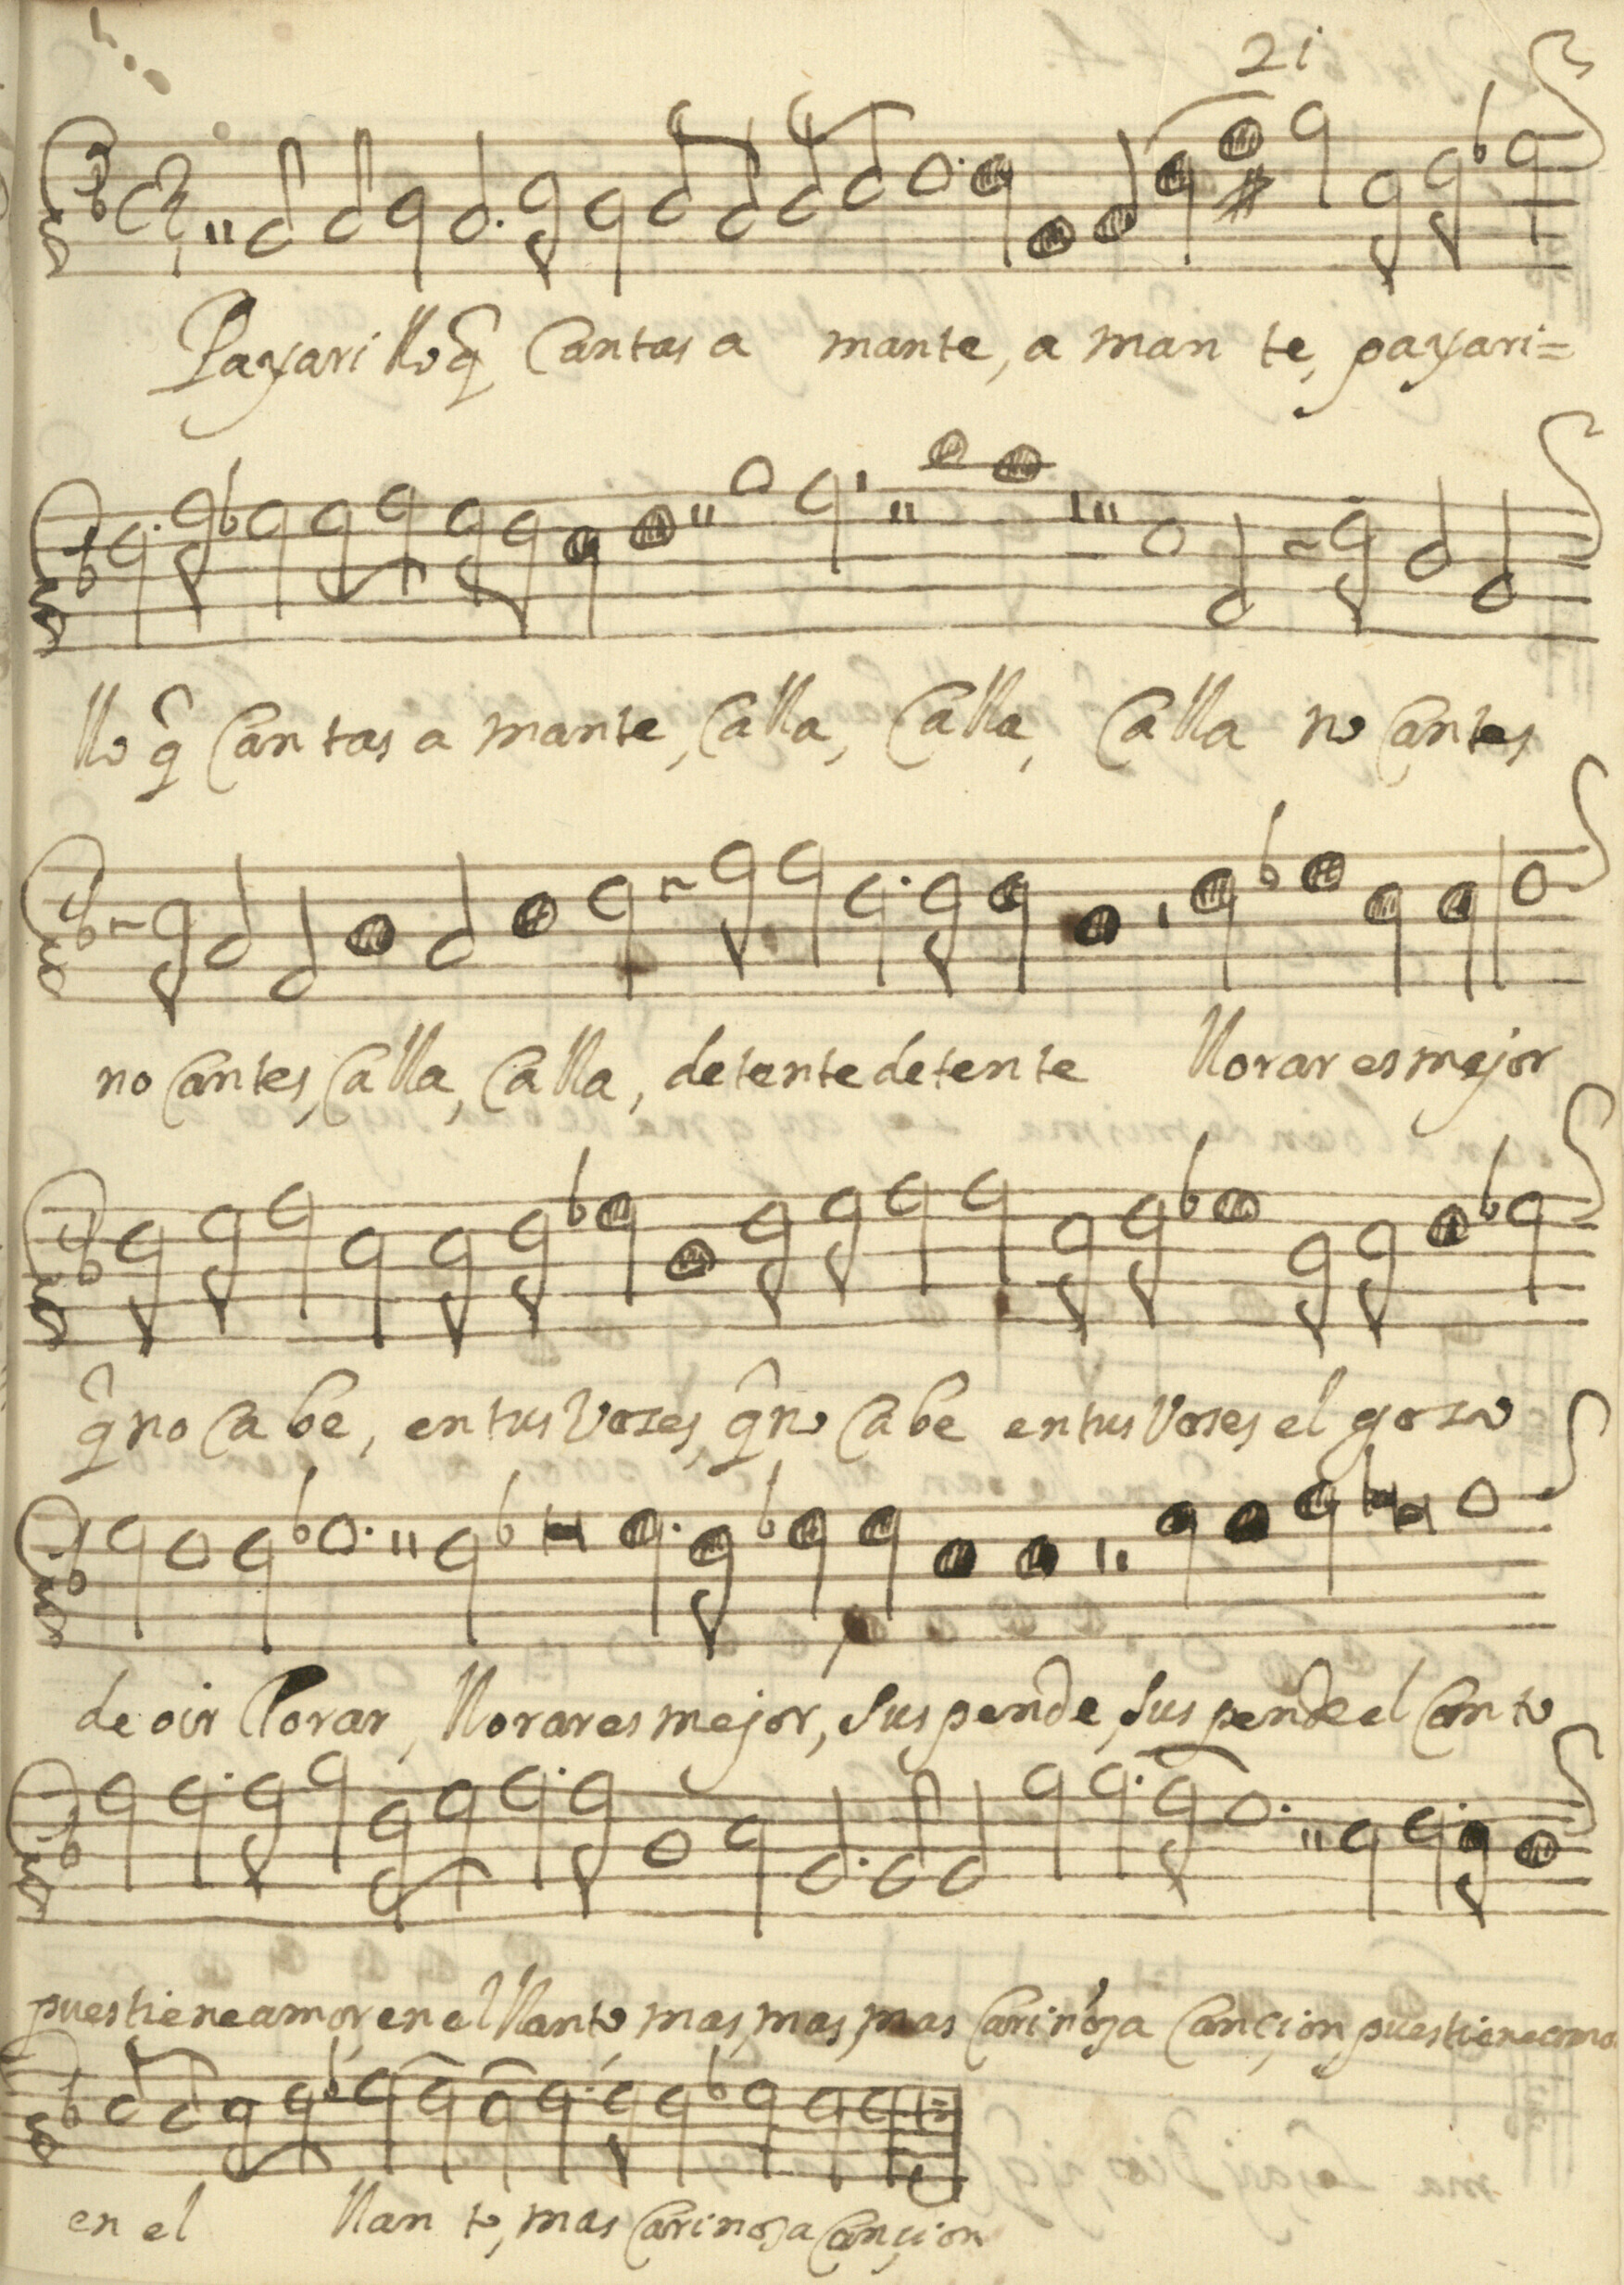 21
Paxarillo q̂ Cantas a mante, a man te, paxari=
llo q̂ Cantas a mante, Calla, Calla, Calla no Cantes
no Cantes, Calla, Calla, detente detente llorar es mejor
q̂ no Cabe, en tus Vozes, q̂ no Cabe en tus Vozes el gozo
de oir llorar, llorar es mejor, suspende, suspende el Canto
pues tiene amor en el llanto, mas, mas, mas Cariñosa Cançion, pues tiene amo
en el llan to, mas Cariñosa Cançion